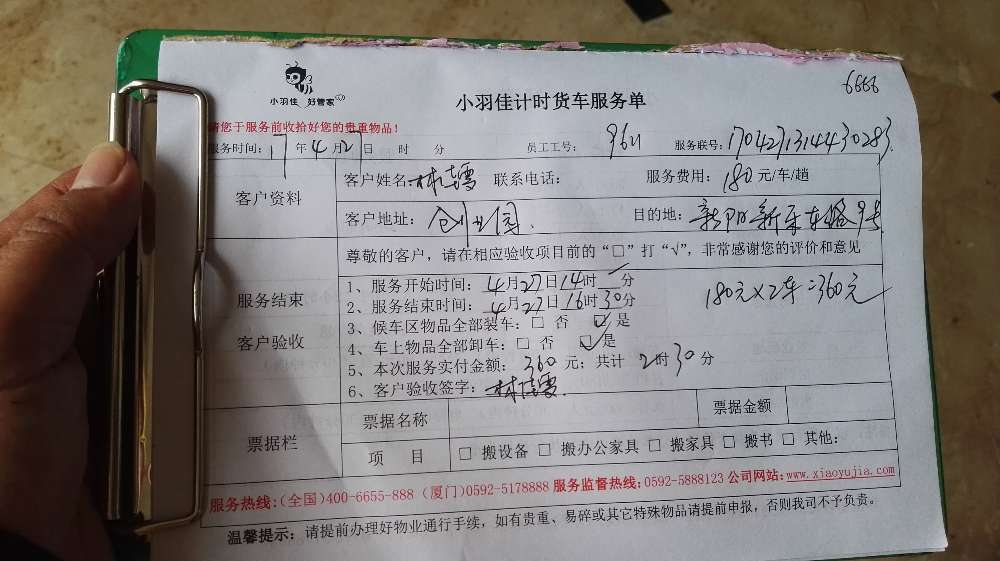 小羽佳 好管家
小羽佳计时货车服务单
6666
请您于服务前收拾好您的贵重物品！
服务时间：17年4月27日 时 分 员工工号：9611 服务联号：17042713144430283
客户资料
客户姓名：林 联系电话： 服务费用：180元/车/趟
客户地址：创业园 目的地：新阳新乐东路9号
服务结束
客户验收
尊敬的客户，请在相应验收项目前的“□”打“√”，非常感谢您的评价和意见
1、服务开始时间：4月27日14时__分
2、服务结束时间：4月27日16时30分
180元×2车=360元
3、候车区物品全部装车：□ 否 ☑ 是
4、车上物品全部卸车：□ 否 ☑ 是
5、本次服务实付金额：360元；共计 2时30分
6、客户验收签字：林
票据栏
票据名称 票据金额
项 目 □ 搬设备 □ 搬办公家具 □ 搬家具 □ 搬书 □ 其他：
服务热线：(全国)400-6655-888 (厦门)0592-5178888 服务监督热线：0592-5888123 公司网站：www.xiaoyujia.com
温馨提示：请提前办理好物业通行手续，如有贵重、易碎或其它特殊物品请提前申报，否则我司不予负责。